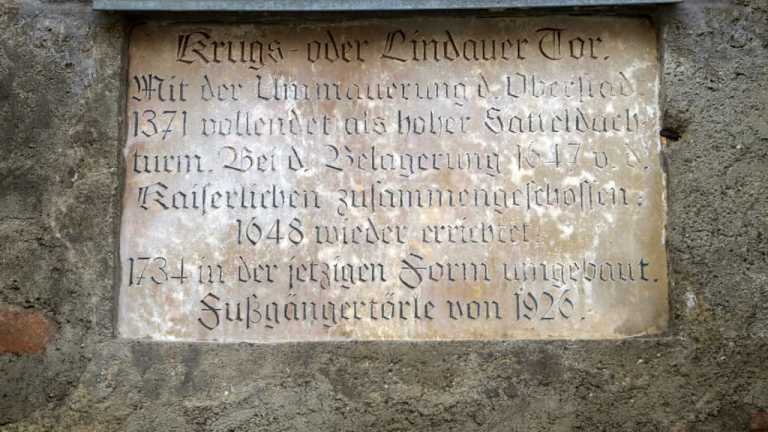 Krugs- oder Lindauer Tor.
Mit der Ummauerung d. Oberstad
1371 vollendet als hoher Satteldach-
turm. Bei d. Belagerung 1647 v. d.
Kaiserlichen zusammengeschossen;
1648 wieder errichtet.
1734 in der jetzigen Form umgebaut.
Fußgängertörle von 1926.